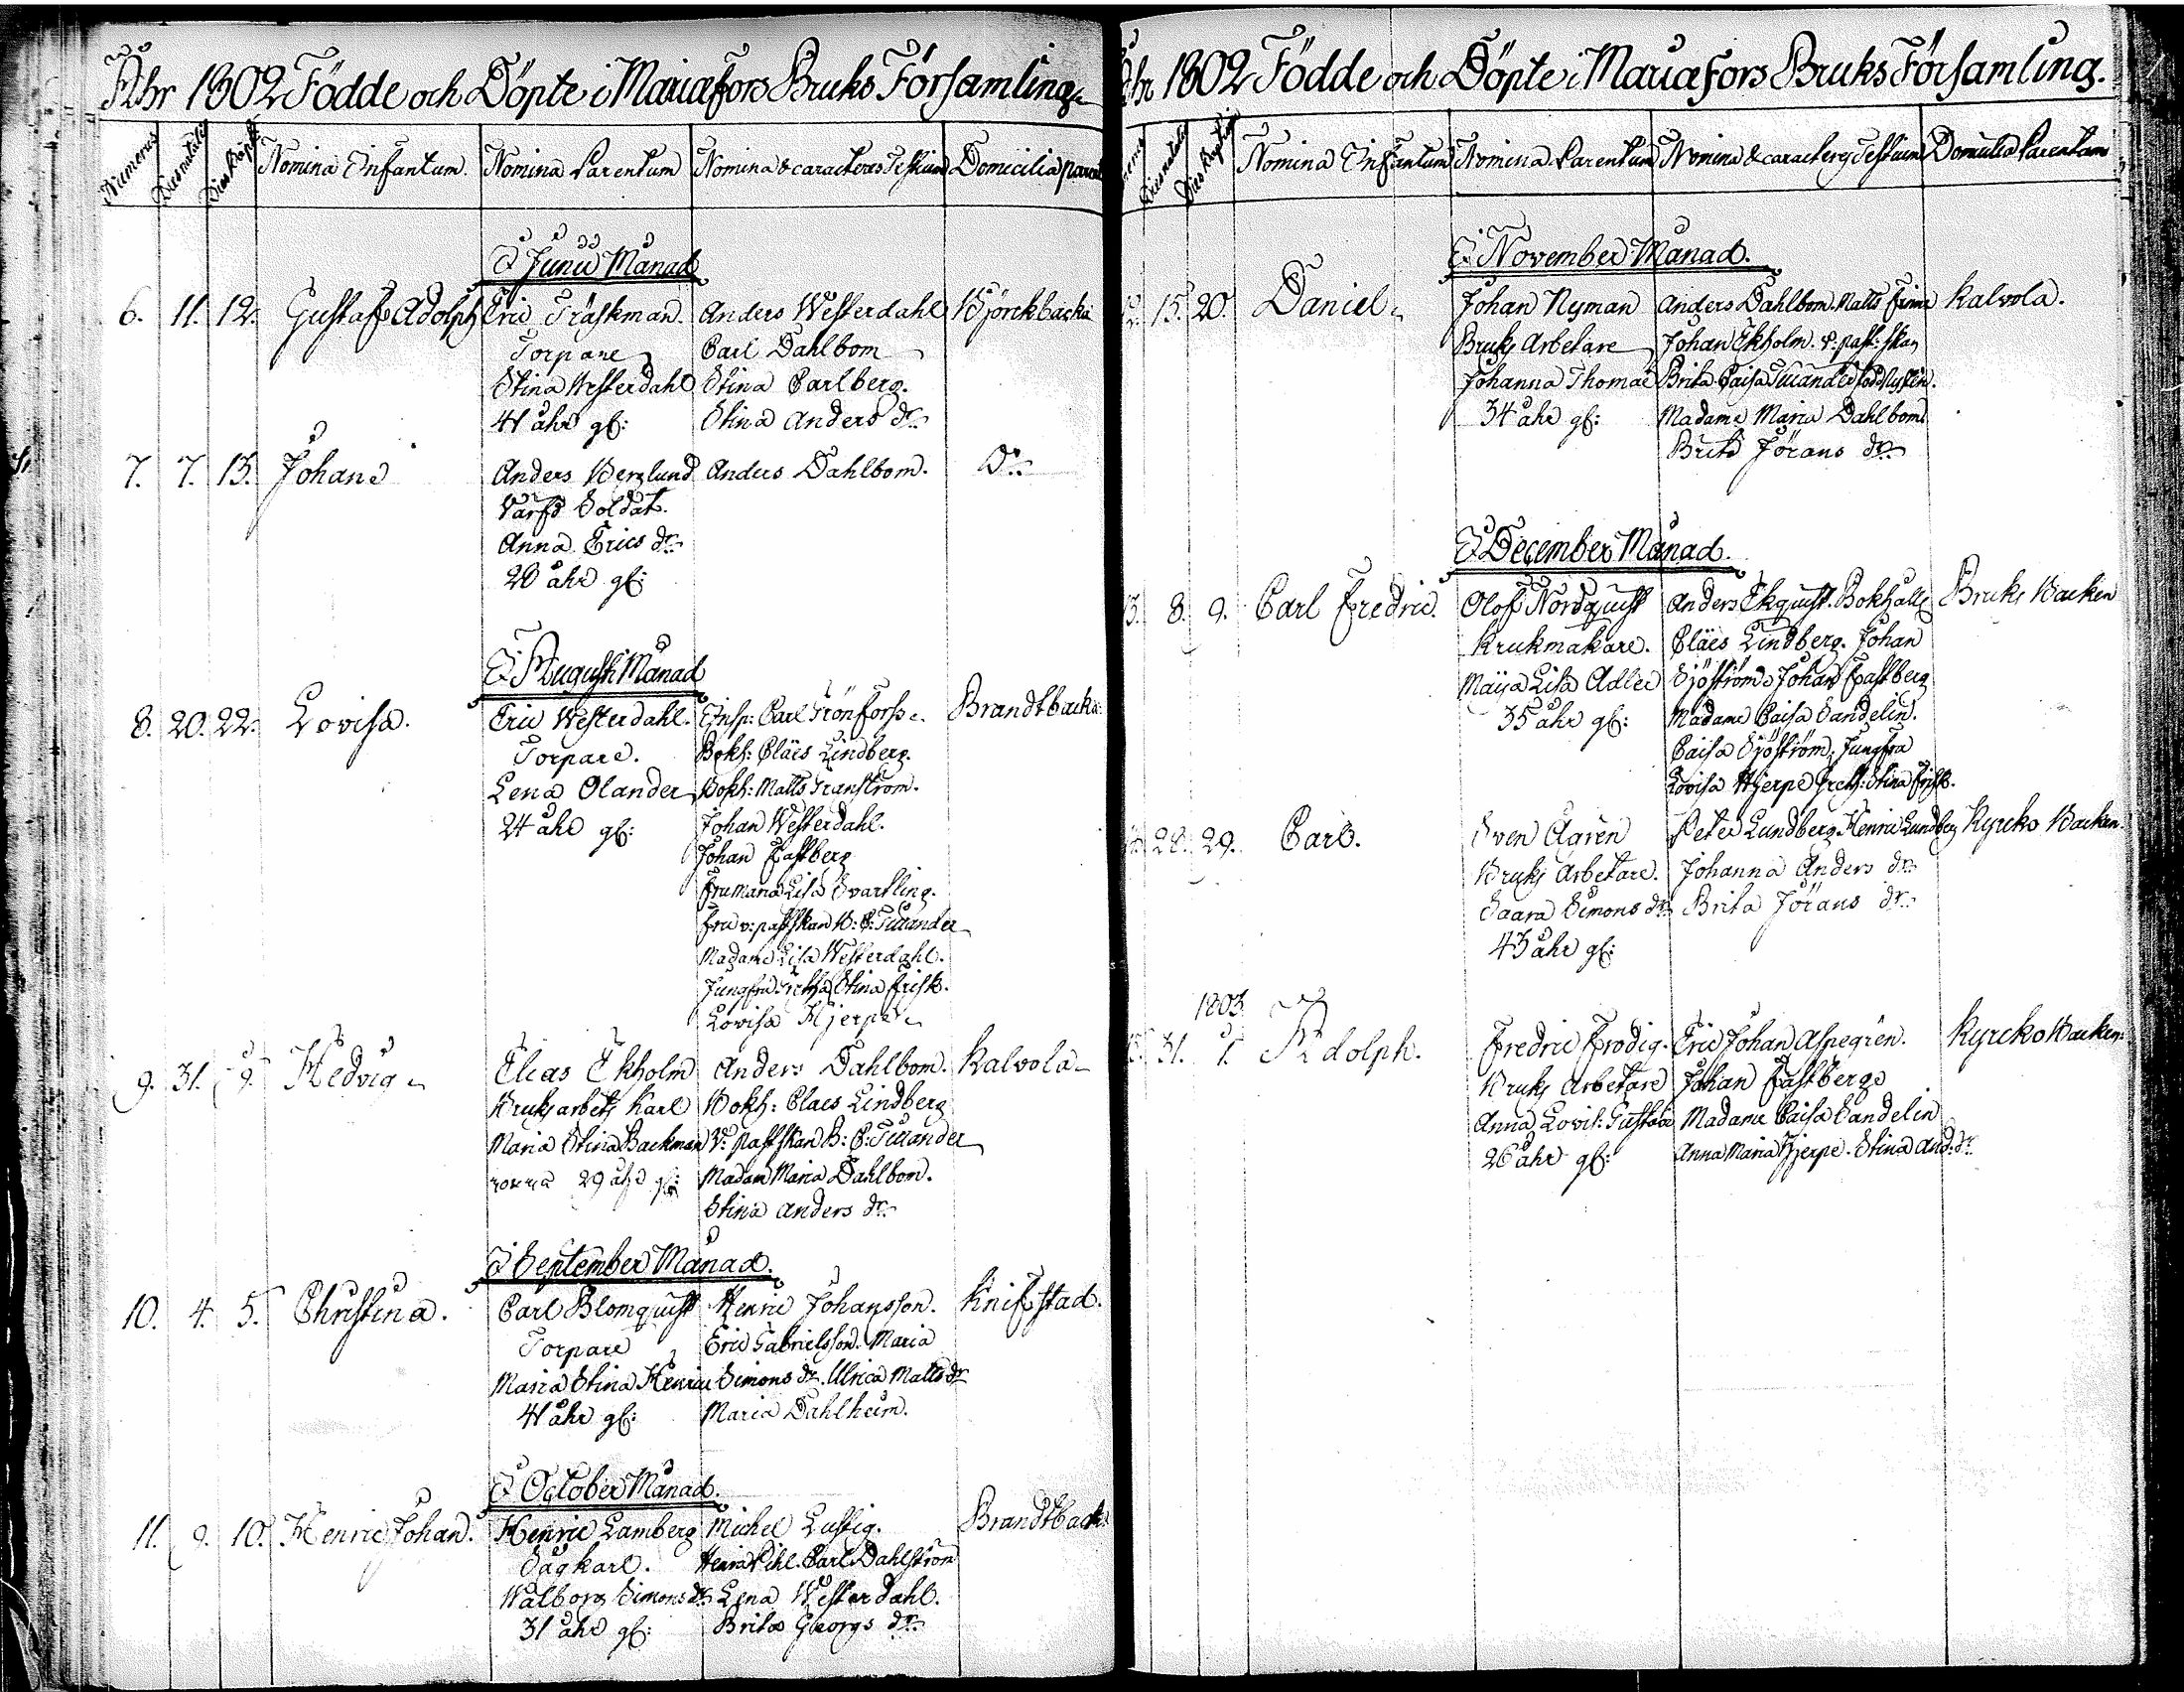 Åhr 1802 Födde och Döpte i Mariæfors Bruks Församling
Numerus Dies natalis Dies Bapt: Nomina Infantum. Nomina Parentum Nomina & caracteres Testium Domicilia parent
I Junii Månad
6. 11. 12. Gustaf Adolph Eric Träskman. Anders Westerdahl Björckbacka
Torpare Carl Dahlbom
Stina Westerdahl Stina Carlberg.
41 åhr gl: Stina Anders dr
7. 7. 13. Johan Anders Berglund Anders Dahlbom. Do
Värfd Soldat.
Anna Erics dr
28 åhr gl:
I Augusti Månad
8. 20. 22. Lovisa. Eric Westerdahl. Insp: Carl Grönfors Brandtbacka
Torpare. Bokh: Claës Lindberg.
Lena Olander Bokh: Matts Granström.
24 åhr gl: Johan Westerdahl.
Johan Fastberg
Fru Maria Lisa Svartling.
Fru v: past:skan B: C: Ticcander
Madame Lisa Westerdahl.
Jungfru Gretha Stina Frisk.
Lovisa Hjerpe
9. 31. 9. Hedvig Elias Ekholm Anders Dahlbom. Kalvola
Bruks arbets Karl Bokh: Claes Lindberg
Maria Stina Backman V: past skan B: C: Ticcander
29 åhr gl: Madam Maria Dahlbom.
Stina Anders dr
I September Månad.
10. 4. 5. Christina. Carl Blomquist Henric Johansson. Knifstad.
Torpare Eric Gabrielsson. Maria
Maria Stina Henric Simons dr. Ulrica Matts dr
41 åhr gl: Maria Dahlheim.
I October Månad.
11. 9. 10. Henric Johan. Henric Lamberg Michel Lustig. Brandtback
Sågkarl. Henric Pihl. Carl Dahlström
Walborg Simons dr Lena Westerdahl.
31 åhr gl: Brita Georgs dr
Åhr 1802 Födde och Döpte i Mariæfors Bruks Församling.
Dies natalis Dies Baptis Nomina Infantum Nomina Parentum Nomina & caracteres Testium Domicilia Parentum
I November Månad.
12. 15. 20. Daniel Johan Nyman Anders Dahlbom. Matts Kalvola.
Bruks Arbetare Johan Ekholm. v: past: skan
Johanna Thomæ Brita Caisa Ticcander född Nystén.
34 åhr gl: Madame Maria Dahlbom
Brita Jörans dr
I December Månad.
13. 8. 9. Carl Fredric. Olof Nordquist Anders Ekquist. Bokhåll Bruks Backen
Krukmakare. Claës Lindberg. Johan
Maija Lisa Adler Sjöström. Johan Fastberg
35 åhr gl: Madame Caisa Sandelin.
Caisa Sjöström, Jungfru
Lovisa Hjerpe Greth: Stina Frisk.
28. 29. Carl. Sven Agrén Peter Lundberg. Henric Lundberg Kyrcko Backen.
Bruks Arbetare. Johanna Anders dr
Saara Simons dr Brita Jörans dr
43 åhr gl:
1803
31. 1. Adolph. Fredric Frodig. Eric Johan Aspegrén. Kyrcko Backen.
Bruks Arbetare Johan Fastberg
Anna Lovis: Gustava Madame Caisa Sandelin
26 åhr gl: Anna Maria Hjerpe. Stina And: dr